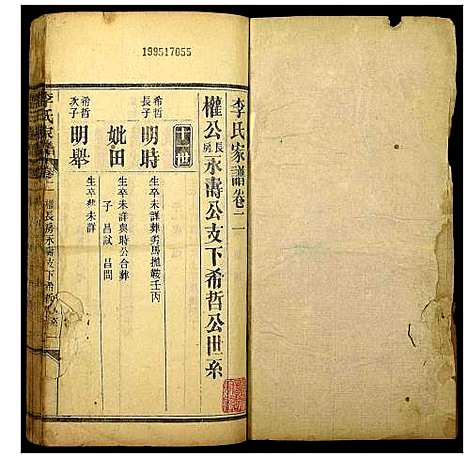 199517055
李氏家譜卷二
權公長房永壽公支下希哲公世系
十一世
希哲長子 明時 生卒未詳葬劣馬拋鞍壬丙
妣田 生卒未詳與時公合葬
子 昌試 昌問
希哲次子 明舉 生卒葬未詳
李氏家譜卷二 權長房永壽支下希哲